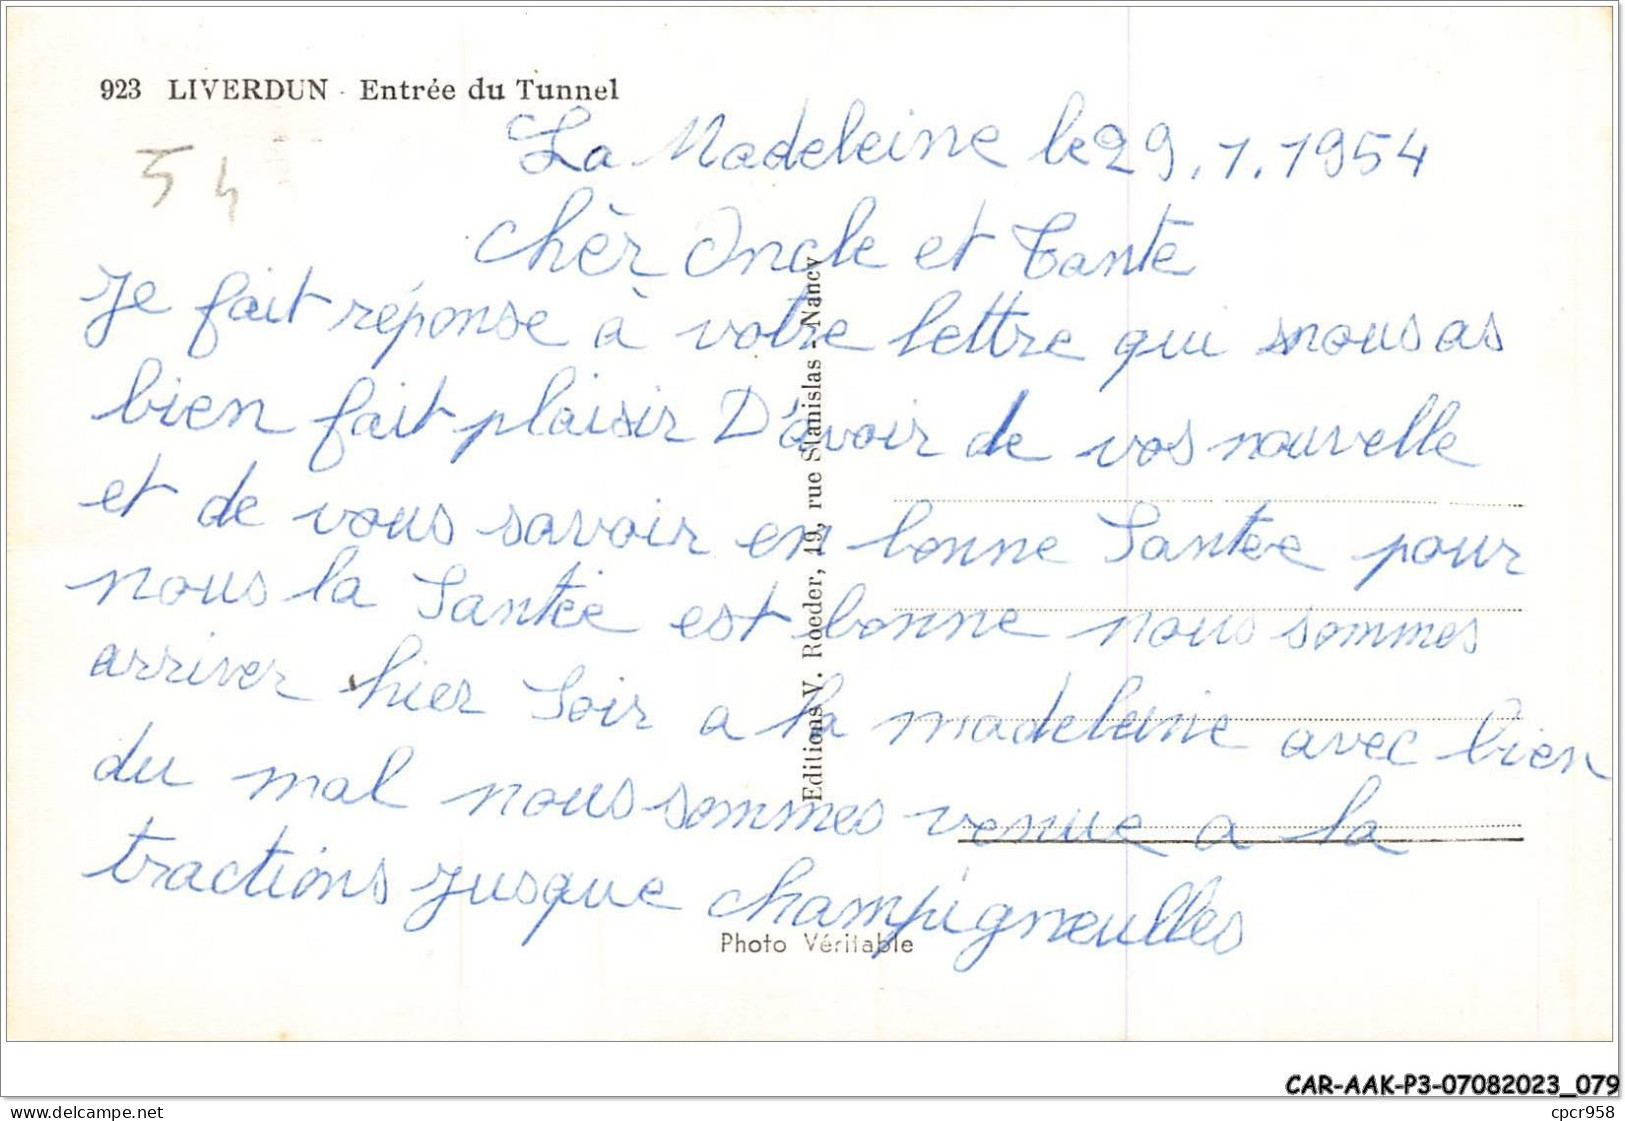 923 LIVERDUN - Entrée du Tunnel
54
La Madeleine le 29.1.1954
chèr Oncle et Tante
Je fait réponse à votre lettre qui nous as
bien fait plaisir D'avoir de vos nouvelle
et de vous savoir en bonne Santée pour
nous la Santée est bonne nous sommes
arriver hier Soir a la madeleine avec bien
du mal nous sommes venue a la
tractions jusque champigneulles
Editions V. Roeder, 19, rue Stanislas - Nancy
Photo Véritable
CAR-AAK-P3-07082023_079
www.delcampe.net
cpcr958